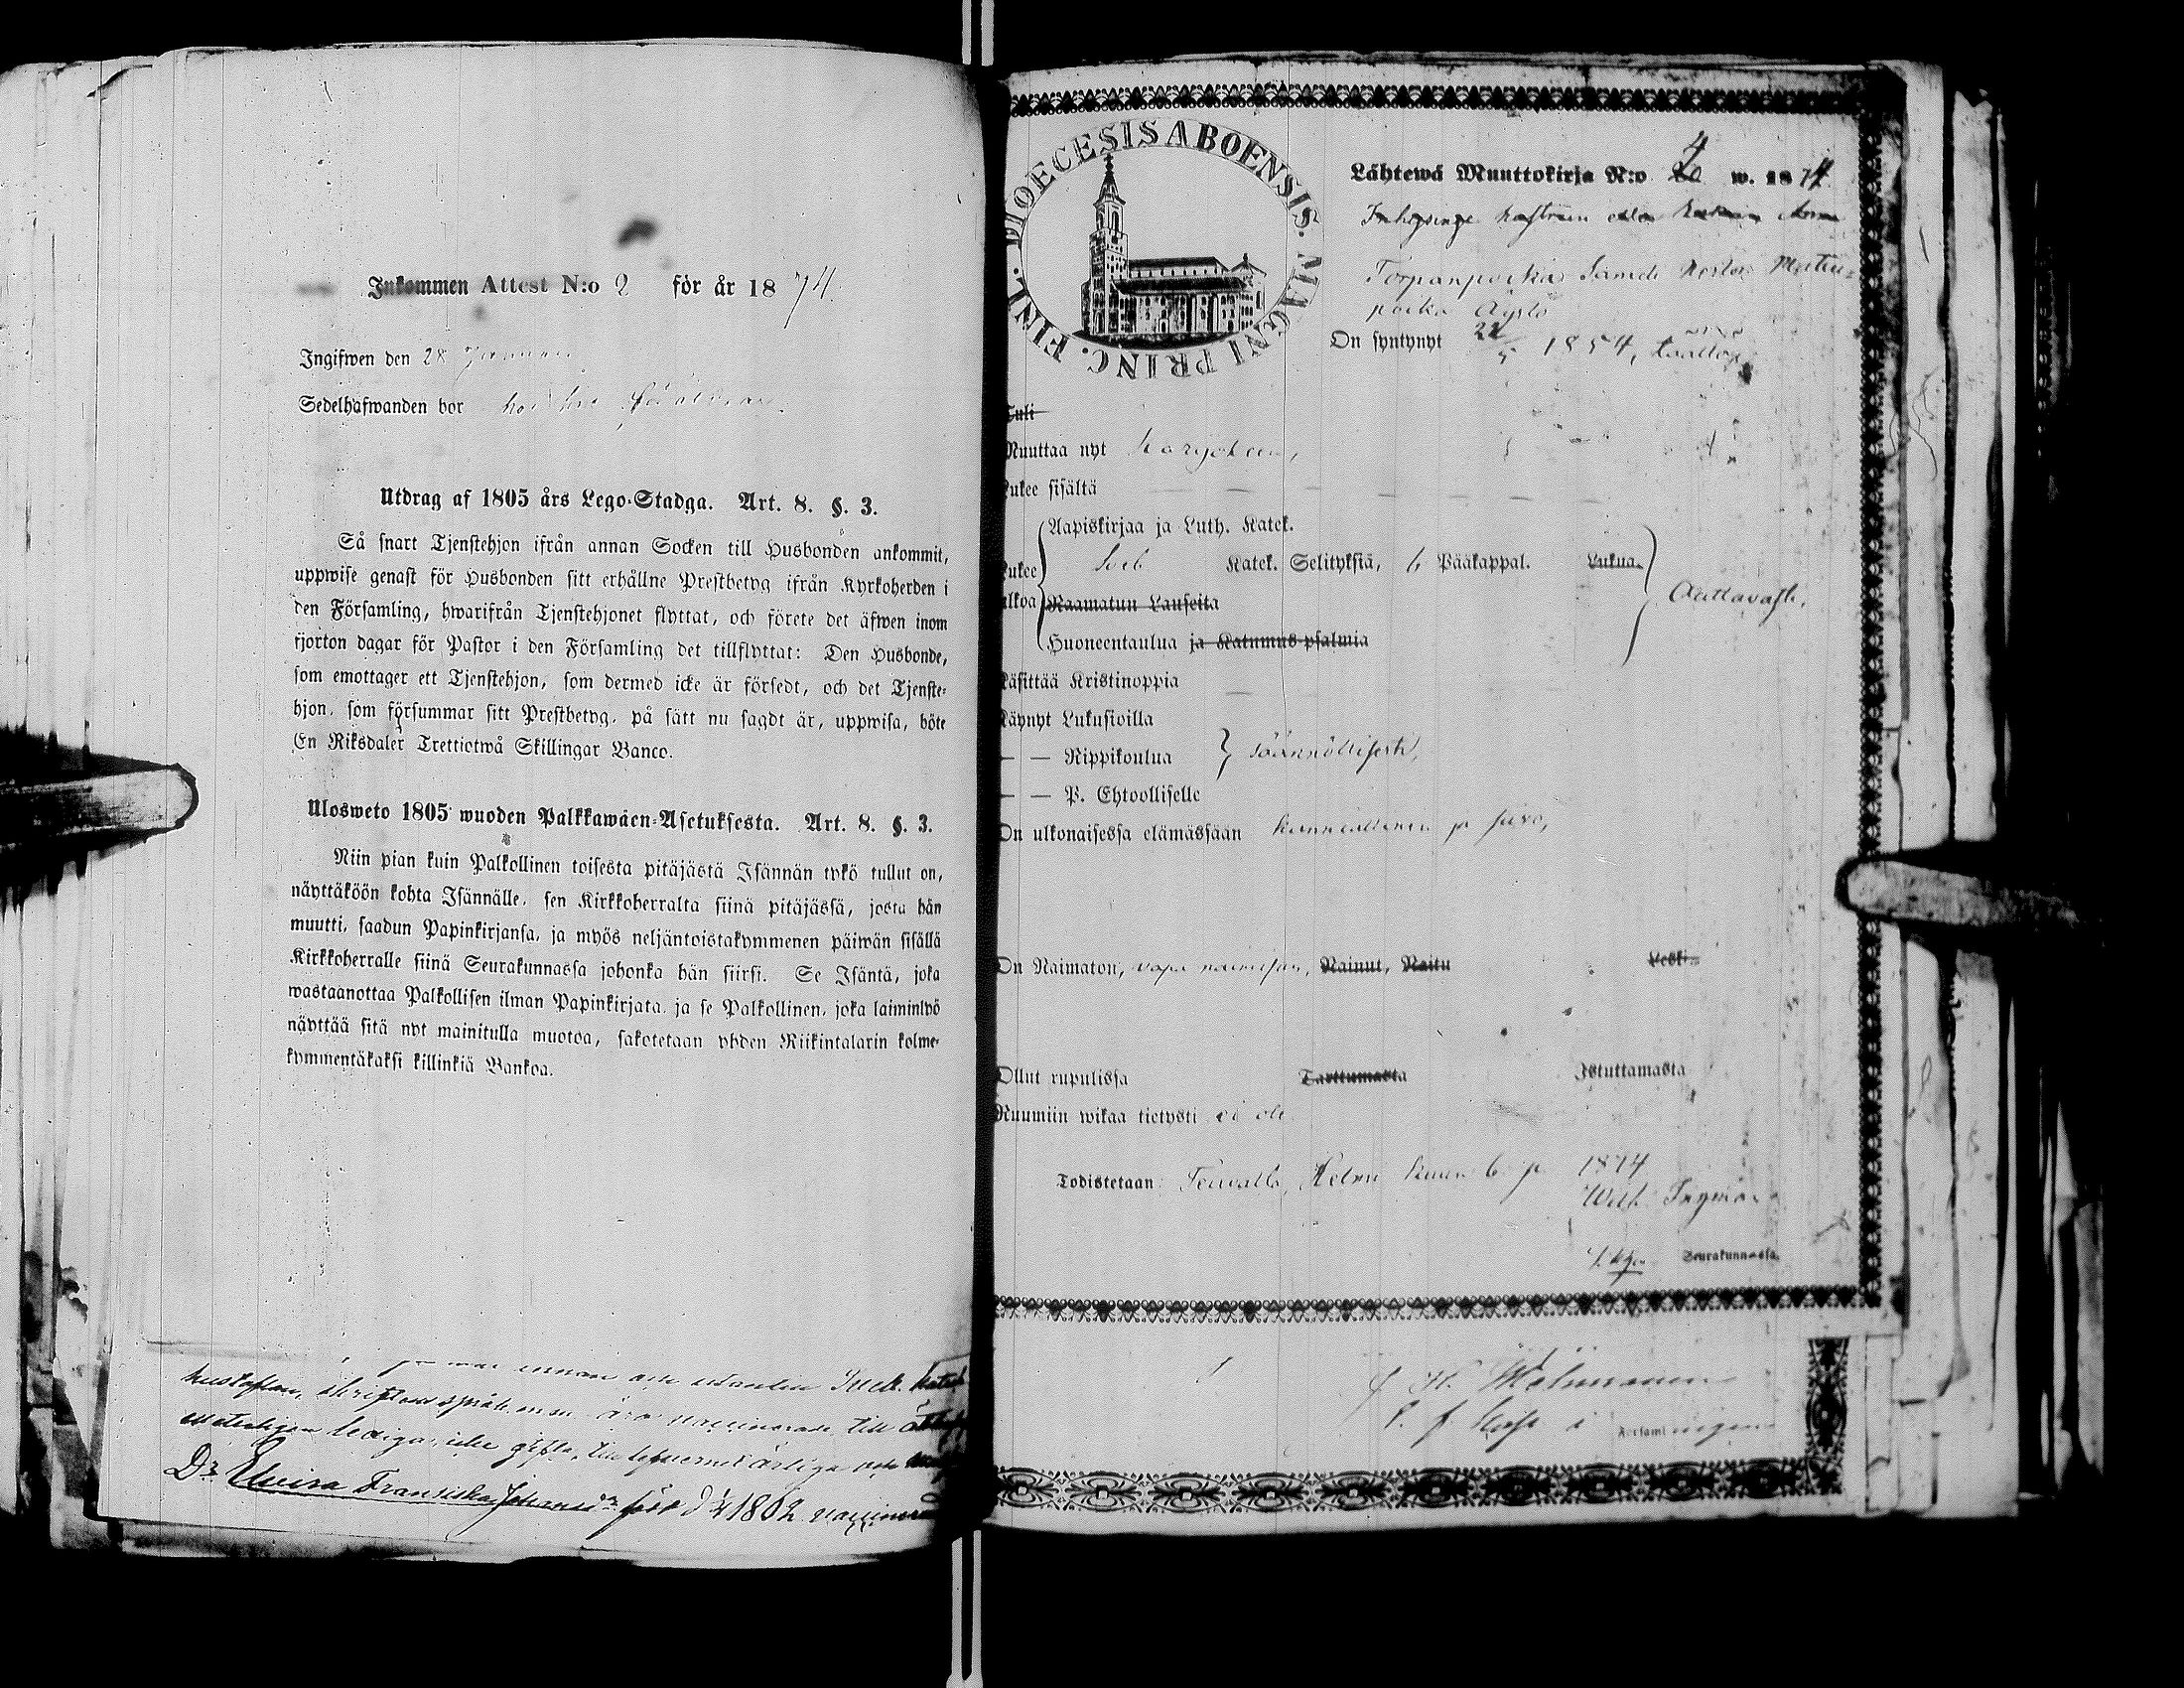 Inkommen Attest N:o 2 för år 1874.
Ingifwen den 28 Januari
Sedelhafwanden bor hos
Utdrag af 1805 års Lego-Stadga. Art. 8. §. 3.
Så snart Tjenstehjon ifrån annan Socken till Husbonden ankommit,
uppwise genast för Husbonden sitt erhållne Prestbetyg ifrån Kyrkoherden i
den Församling, hwarifrån Tjenstehjonet flyttat, och förete det äfwen inom
fjorton dagar för Pastor i den Församling det tillflyttat: Den Husbonde,
som emottager ett Tjenstehjon, som dermed icke är försedt, och det Tjenste-
hjon, som försummar sitt Prestbetyg, på sätt nu sagdt är, uppwisa, böte
En Riksdaler Trettiotwå Skillingar Banco.
Ulosweto 1805 wuoden Palkkawäen-Asetuksesta. Art. 8. §. 3.
Niin pian kuin Palkollinen toisesta pitäjästä Isännän tykö tullut on,
näyttäköön kohta Isännälle, sen Kirkkoherralta siinä pitäjässä, josta hän
muutti, saadun Papinkirjansa, ja myös neljäntoistakymmenen päiwän sisällä
Kirkkoherralle siinä Seurakunnassa johonka hän siirsi. Se Isäntä, joka
wastaanottaa Palkollisen ilman Papinkirjata, ja se Palkollinen, joka laiminlyö
näyttää sitä nyt mainitulla muotoa, sakotetaan yhden Riikintalarin kolme-
kymmentäkaksi killinkiä Bankoa.
innan och utantill Luth. Katek
hustaflan, skriftens språk, men äro vaccinerade, till
lediga, icke gifta, till lefvernet ärliga och
D:r Elvira Fransiska Johansd:r född 1802 vaccinerad
DIOECESIS ABOENSIS. MAGNI PRINC. FINL.
Lähtewä Muuttokirja N:o 4 w. 1874
Torpanpoika
poika Äystö
On syntynyt 22/5 1854,
Tuli
Muuttaa nyt Karjokeen,
Lukee sisältä
Aapiskirjaa ja Luth. Katek.
Lukee Katek. Selityksiä, 6 Pääkappal. Lukua.
ulkoa Raamatun Lauseita Auttavasti,
Huoneentaulua ja Katumus-psalmia
Käsittää Kristinoppia
Käynyt Lukusioilla
— — Rippikoulua } säännöllisesti,
— — P. Ehtoolliselle
On ulkonaisessa elämässään kunniallinen ja
On Naimaton, vapa naimisiin, Nainut, Naitu Leski
Ollut rupulissa Tarttumasta Istuttamasta
Ruumiin wikaa tietysti ei ole
Todistetaan Teuvalla, Helmi kuun 6 p 1874
Wilh. Ingman
Seurakunnassa.
i Församlingen